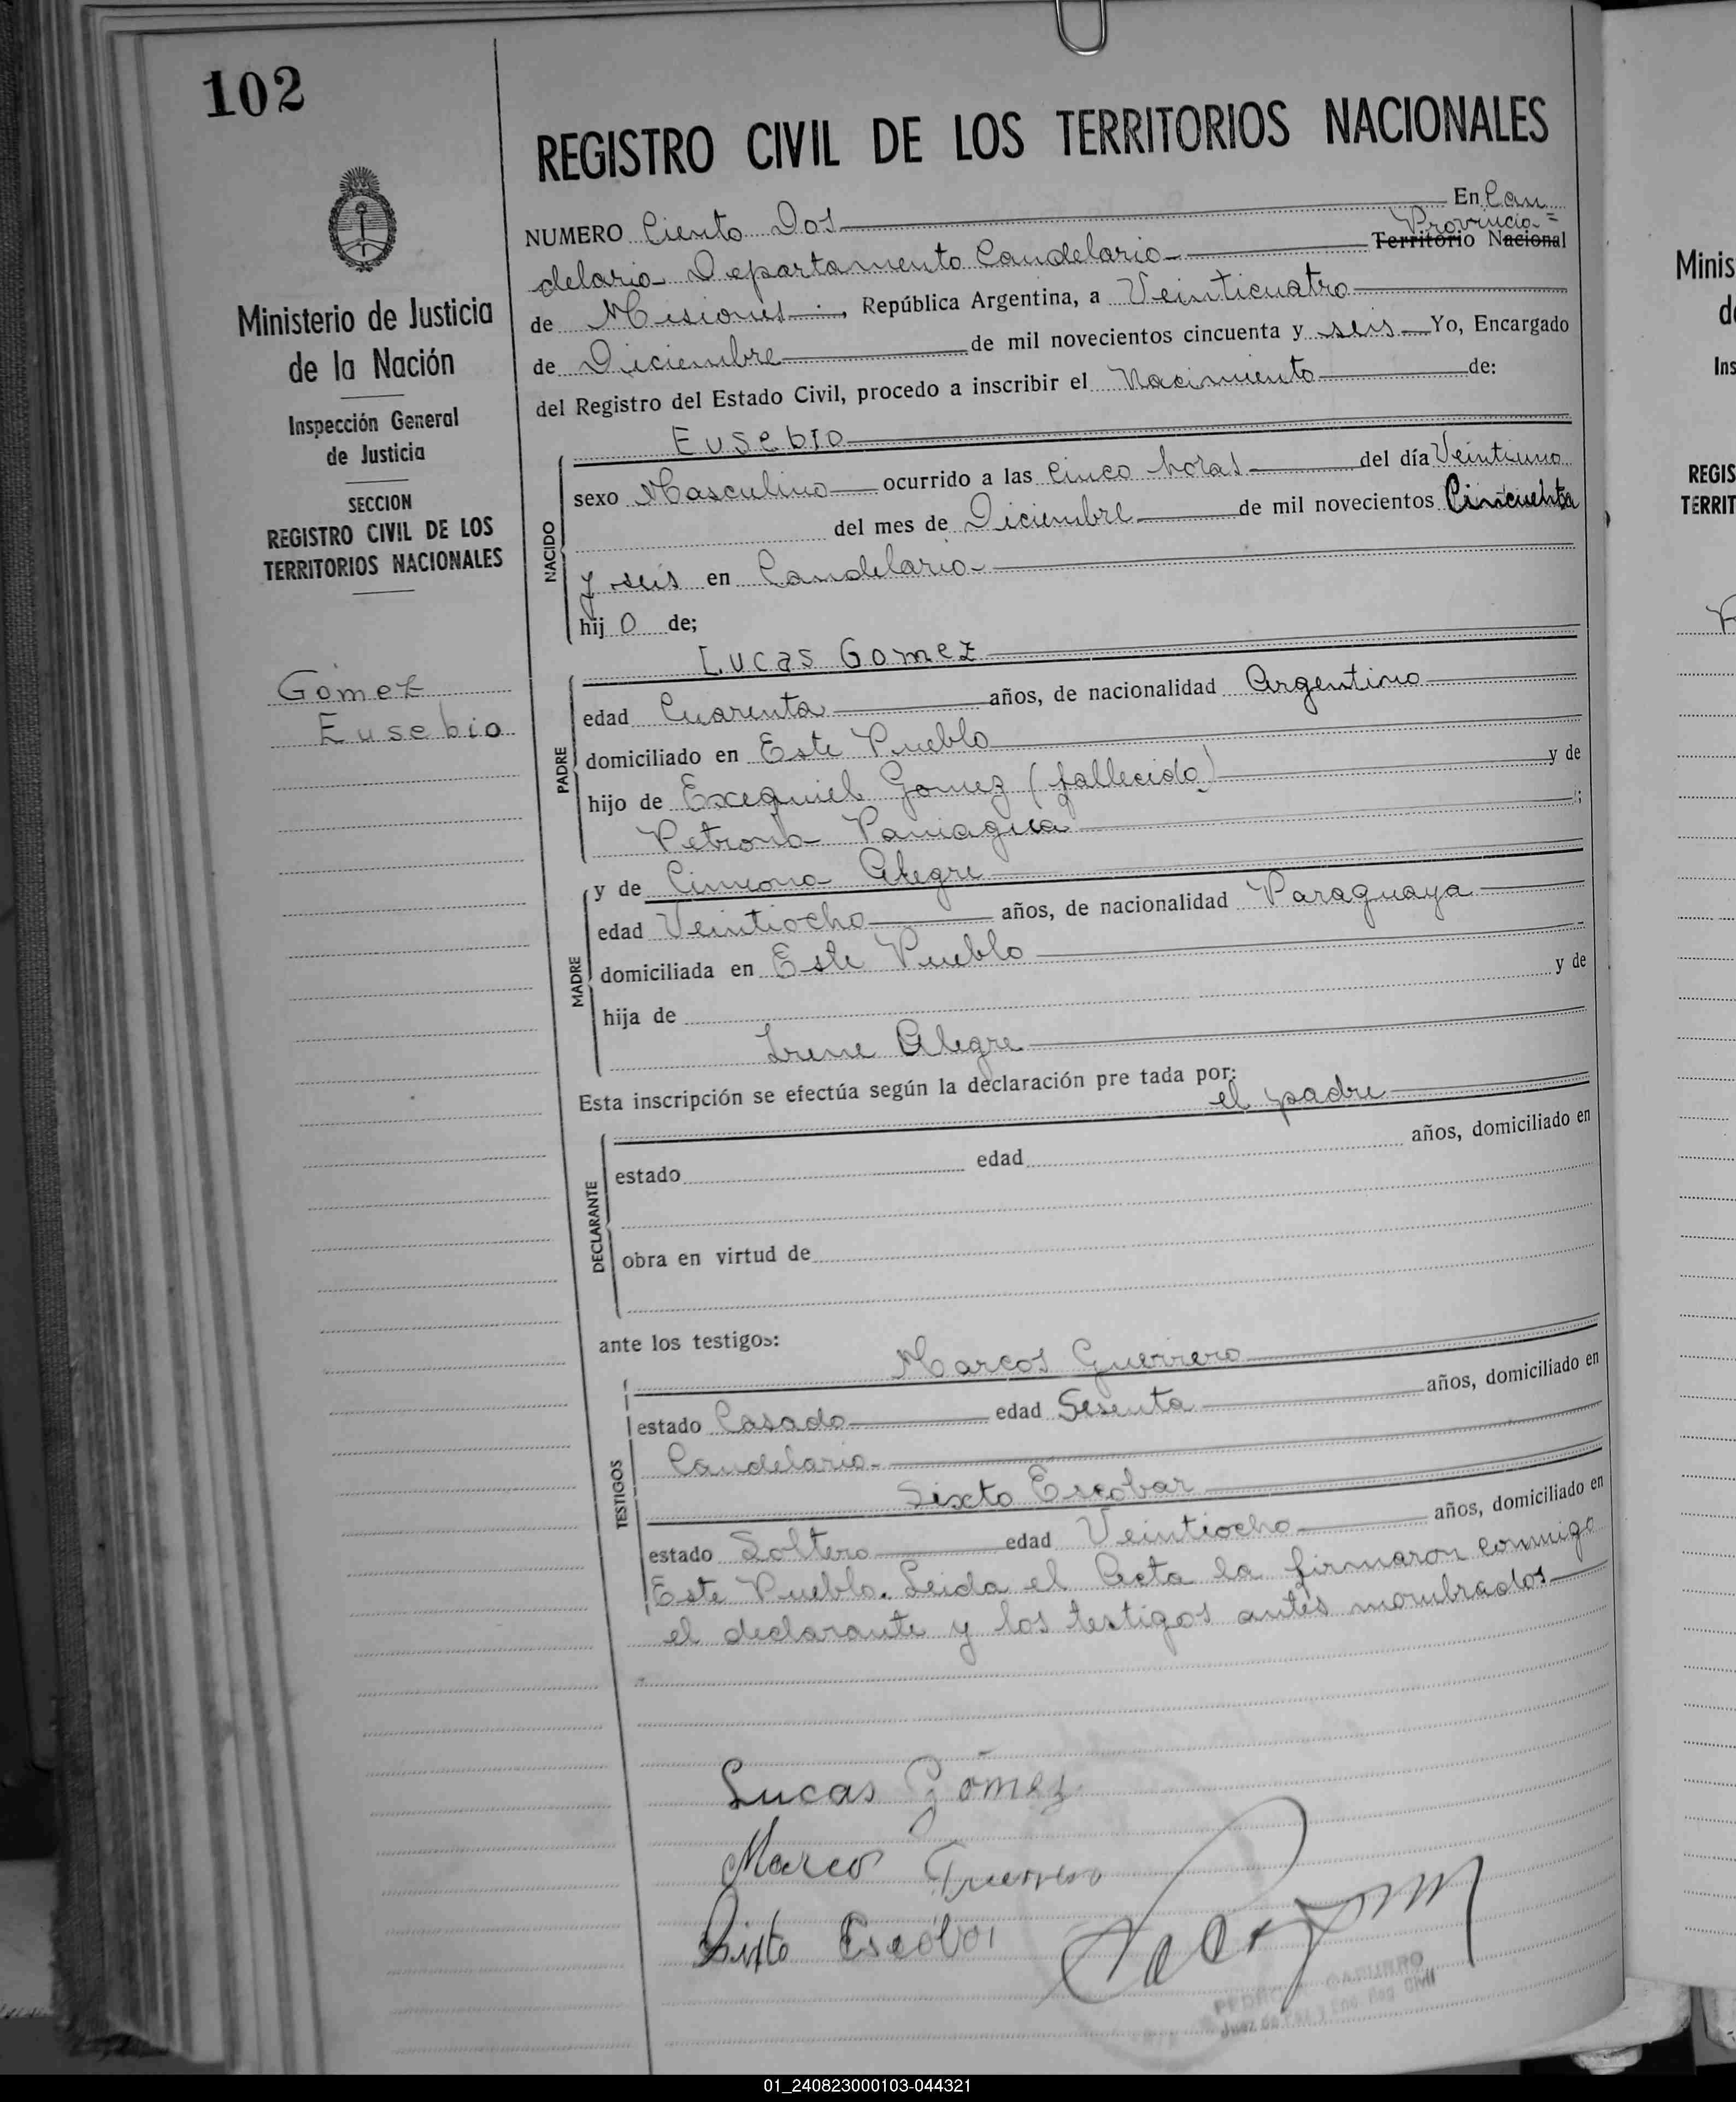 102
REGISTRO CIVIL DE LOS TERRITORIOS NACIONALES
Ministerio de Justicia
de la Nación
Inspección General
de Justicia
SECCION
REGISTRO CIVIL DE LOS
TERRITORIOS NACIONALES
Gomez
Eusebio
NUMERO Ciento Dos En Can
Provincia=
delaria Departamento Candelaria Territorio Nacional
de Misiones, República Argentina, a Veinticuatro
de Diciembre de mil novecientos cincuenta y seis Yo, Encargado
del Registro del Estado Civil, procedo a inscribir el Nacimiento de:
Eusebio
NACIDO
sexo Masculino ocurrido a las cinco horas del día Veintiuno
del mes de Diciembre de mil novecientos Cincuenta
y seis en Candelaria
hij o de;
Lucas Gomez
PADRE
edad Cuarenta años, de nacionalidad Argentino
domiciliado en Este Pueblo
hijo de Exequiel Gomez (fallecido) y de
Petrona Paniagua ;
MADRE
y de Cimona Alegre
edad Veintiocho años, de nacionalidad Paraguaya
domiciliada en Este Pueblo
hija de y de
Irene Alegre
Esta inscripción se efectúa según la declaración pre tada por:
el padre
DECLARANTE
estado edad años, domiciliado en
obra en virtud de
ante los testigos:
Marcos Guerrero
TESTIGOS
estado Casado edad Sesenta años, domiciliado en
Candelaria
Sixto Escobar
estado Soltero edad Veintiocho años, domiciliado en
Este Pueblo. Leida el Acta la firmaron conmigo
el declarante y los testigos antes nombrados
Lucas Gómez
Marcos Guerrero
Sixto Escobar
PEDRO
Juez de Paz y Enc. Reg. Civil
Minis
d
Ins
REGIS
TERRIT
01_240823000103-044321